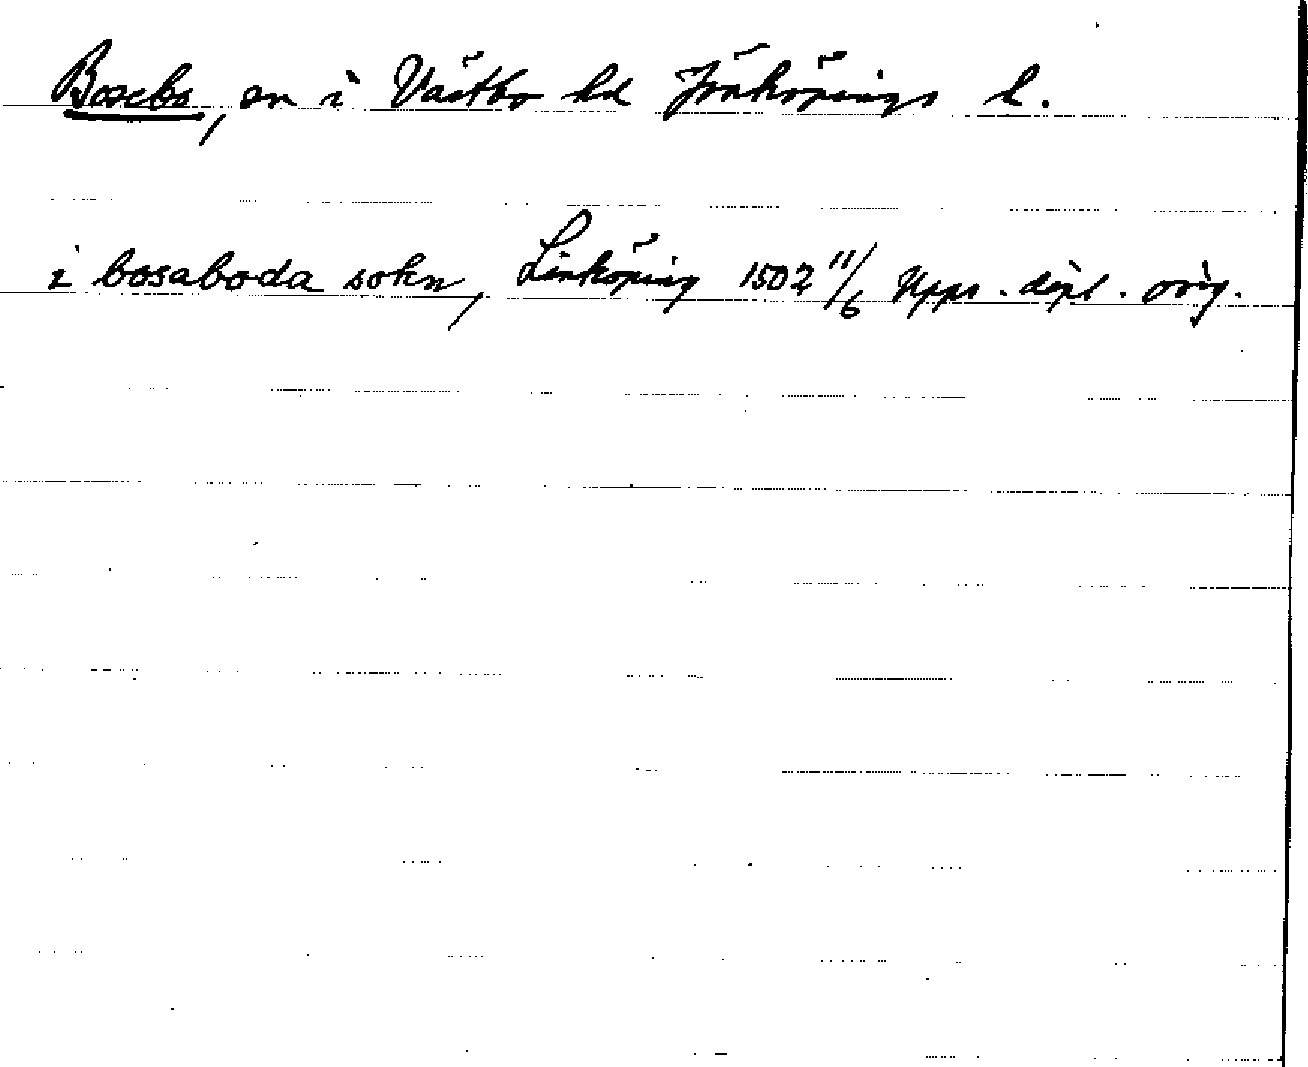 Bosebo, sn i Västbo hd Jönköpings l.
i bosaboda sokn, Linköping 1502 11/6 Upps. dipl. orig.